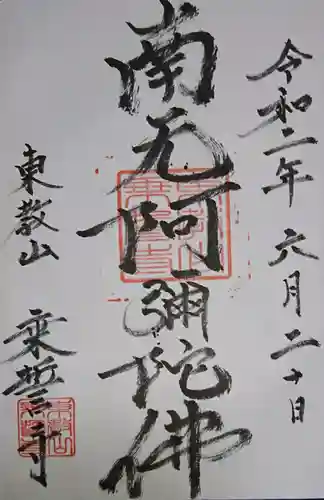 令和二年 六月二十日
南无阿彌陀佛
東教山 乘誓寺